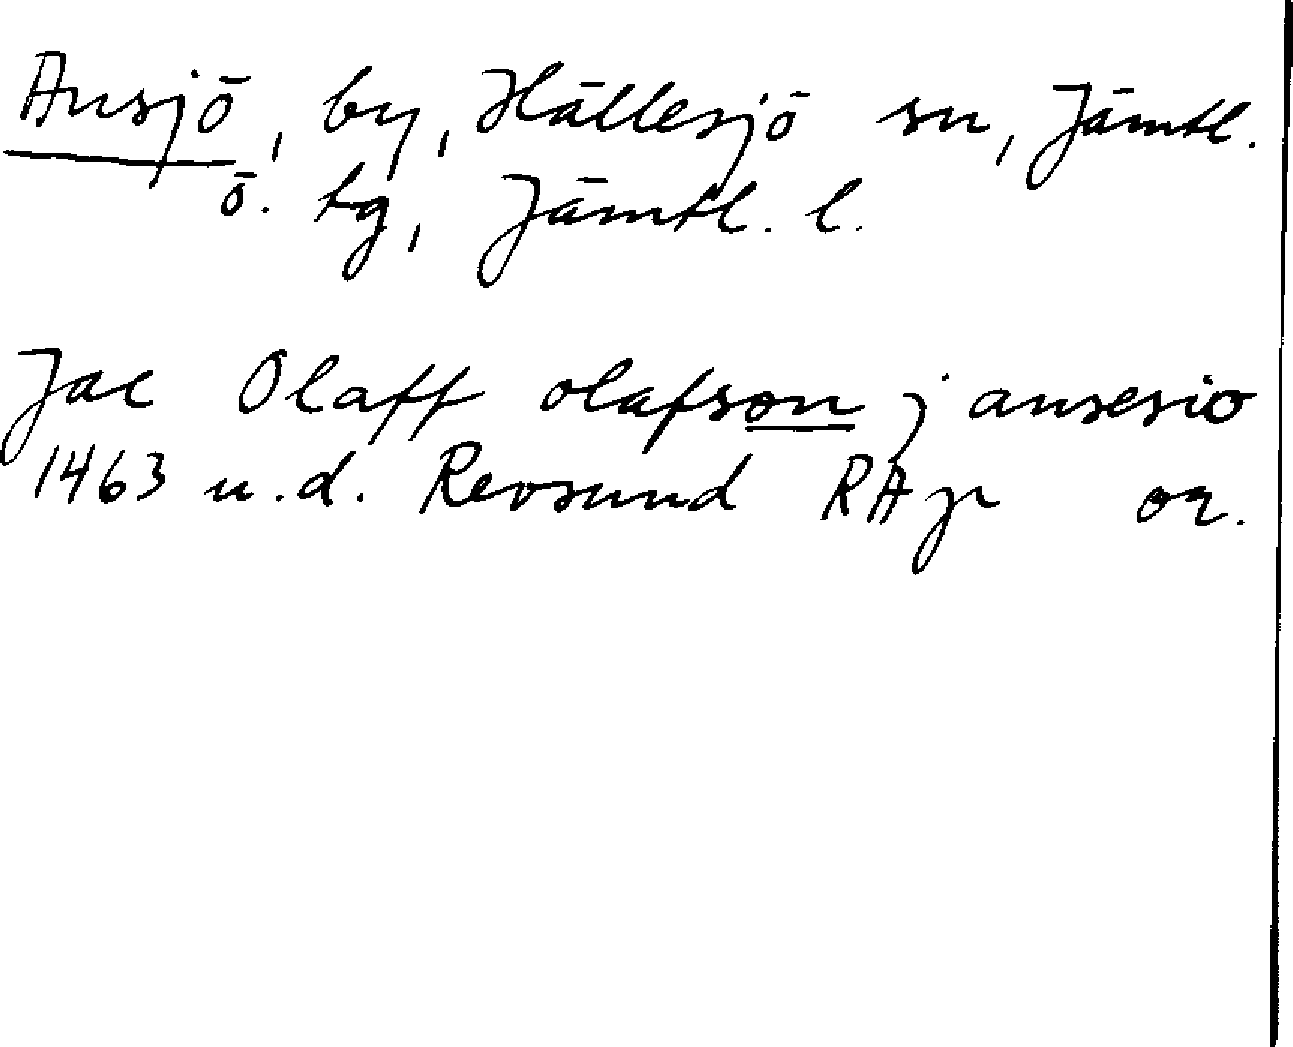 Ansjö, by, Hällesjö sn, Jämtl.
ö. tg, Jämtl. l.
Jac Olaff olafson j ansesio
1463 u.d. Revsund RAp or.